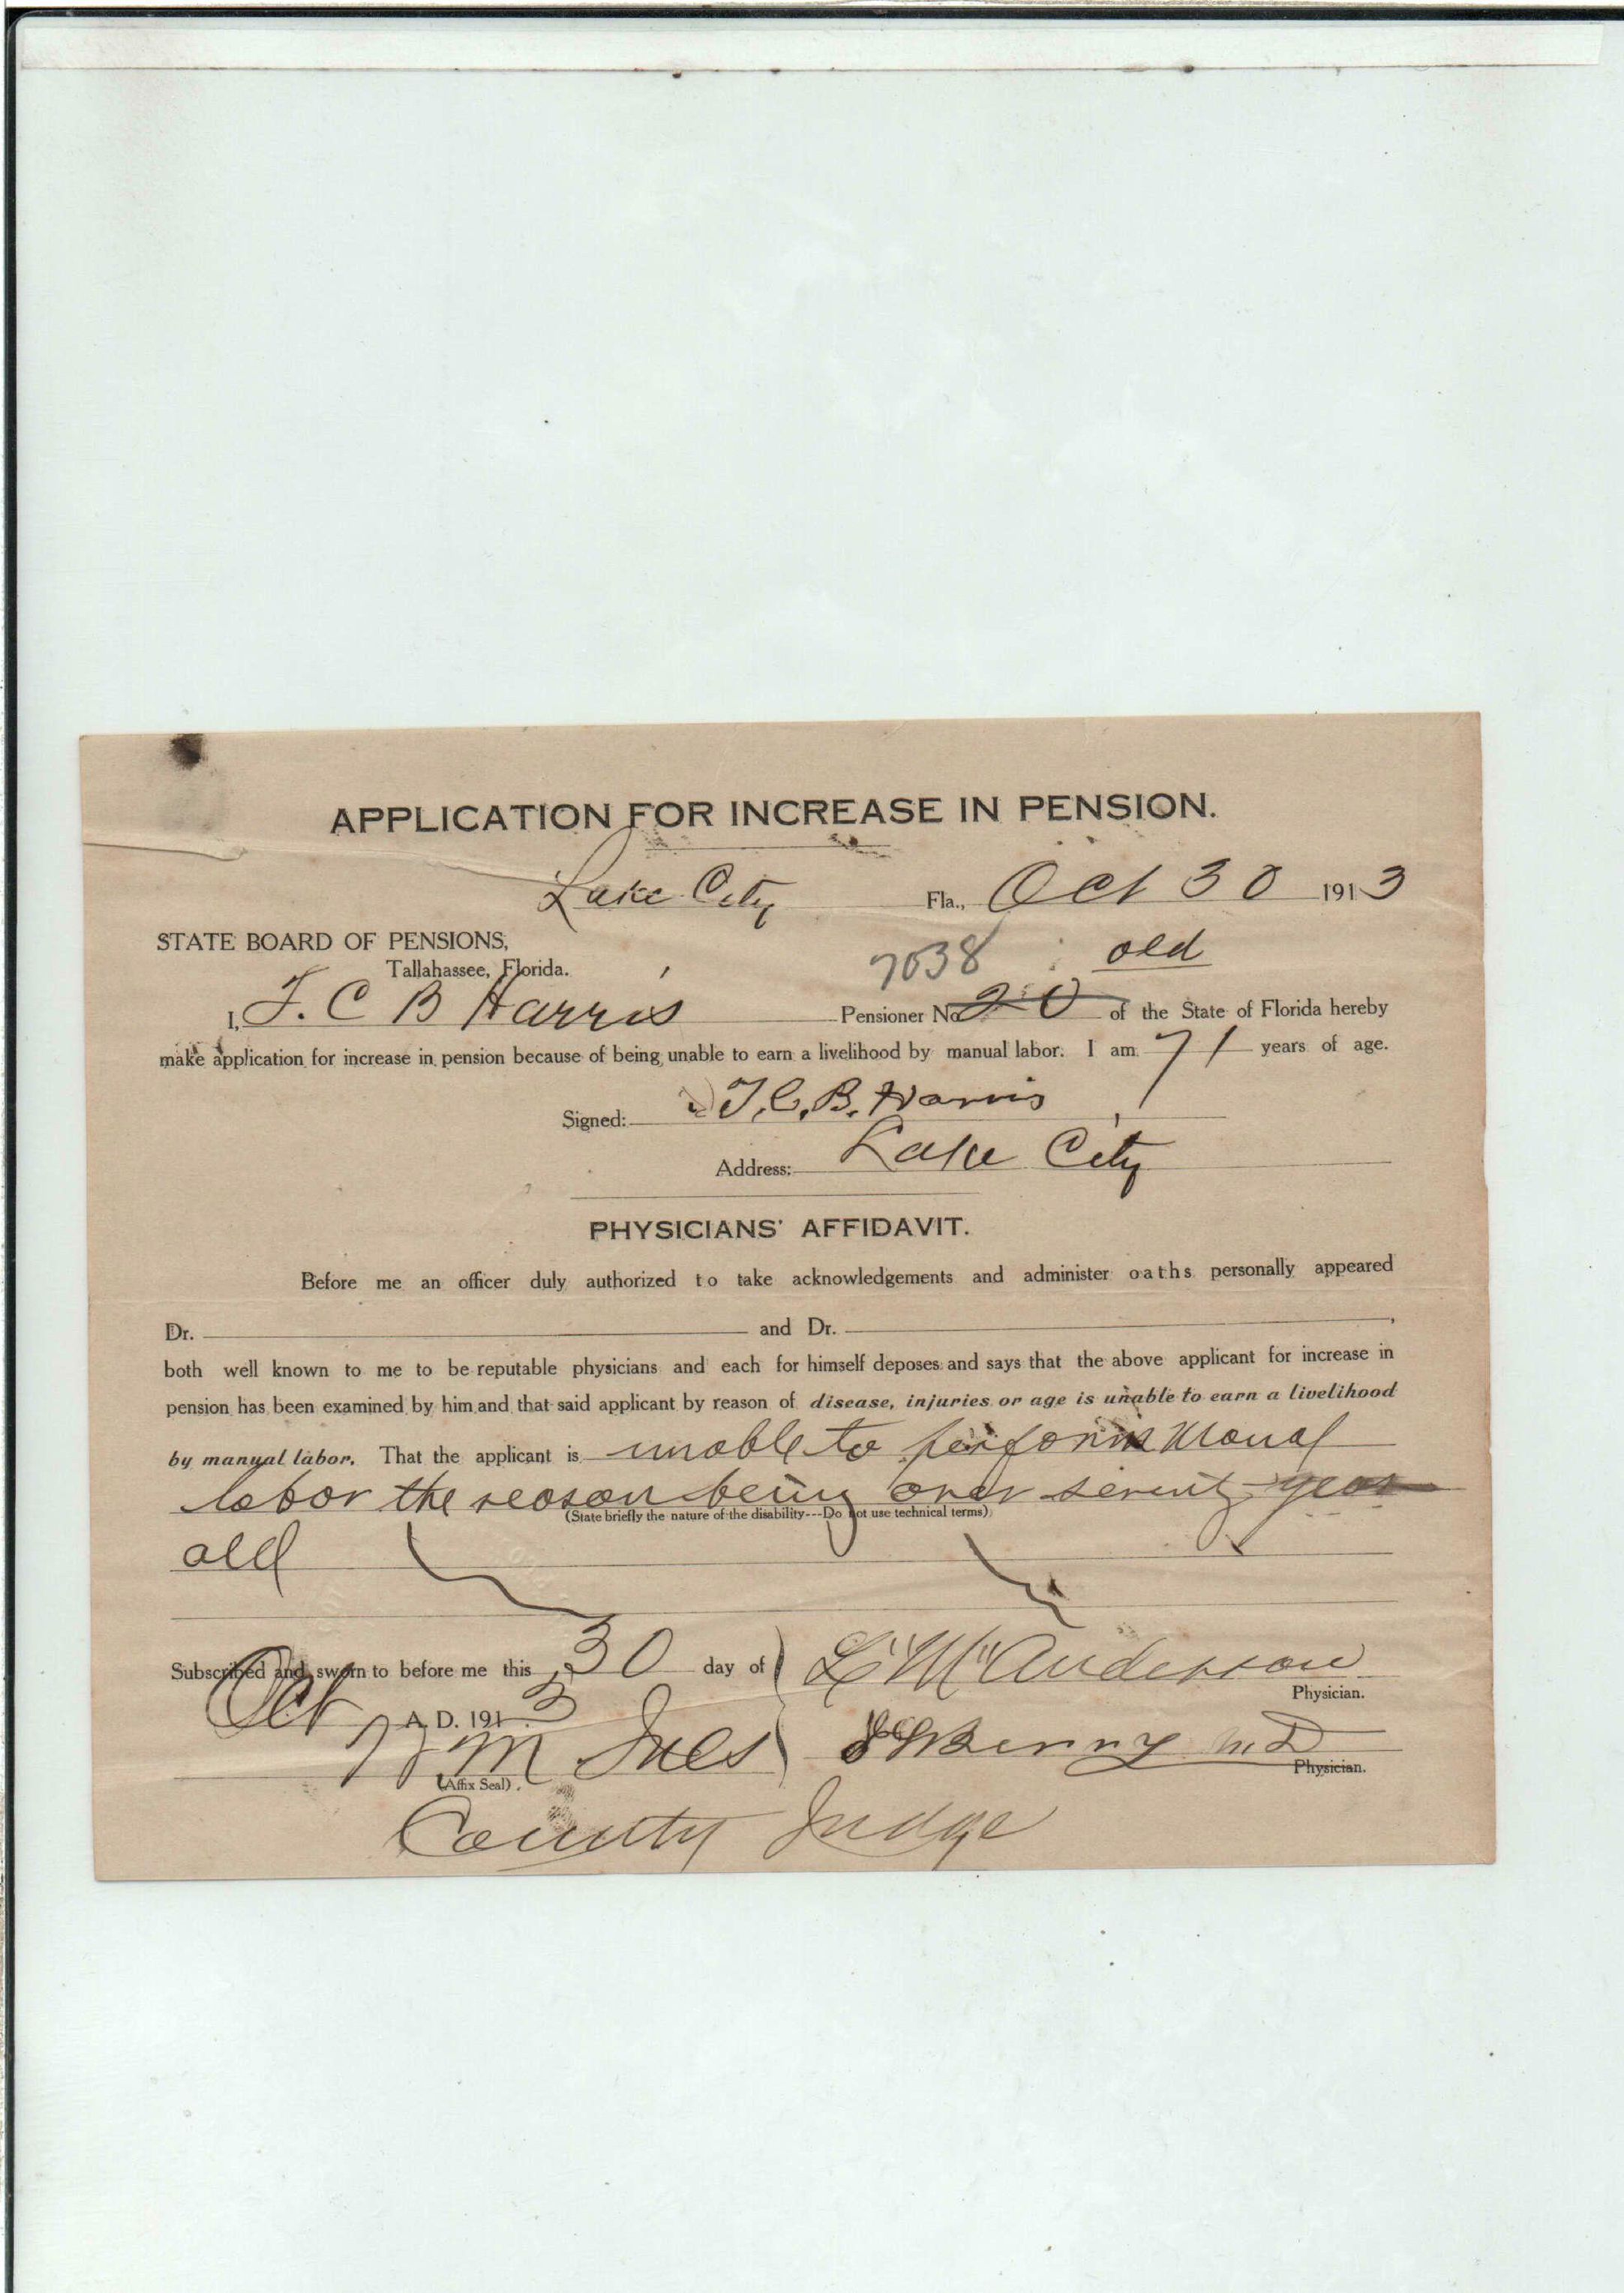 APPLICATION FOR INCREASE IN PENSION.
Lake City Fla., Oct 30 1913
STATE BOARD OF PENSIONS,
Tallahassee, Florida.
7038 old
I, T. C B Harris Pensioner No 20 of the State of Florida hereby
make application for increase in pension because of being unable to earn a livelihood by manual labor. I am 71 years of age.
Signed: T. C. B. Harris
Address: Lake City
PHYSICIANS' AFFIDAVIT.
Before me an officer duly authorized to take acknowledgements and administer oaths personally appeared
Dr. and Dr. ,
both well known to me to be reputable physicians and each for himself deposes and says that the above applicant for increase in
pension has been examined by him and that said applicant by reason of disease, injuries or age is unable to earn a livelihood
by manual labor. That the applicant is unable to perform Manal
labor the reason being over seventy year
(State briefly the nature of the disability---Do not use technical terms)
old
Subscribed and sworn to before me this 30 day of L M Anderson
Physician.
Oct A. D. 1913
W M Ives Berry MD
(Affix Seal) Physician.
County Judge